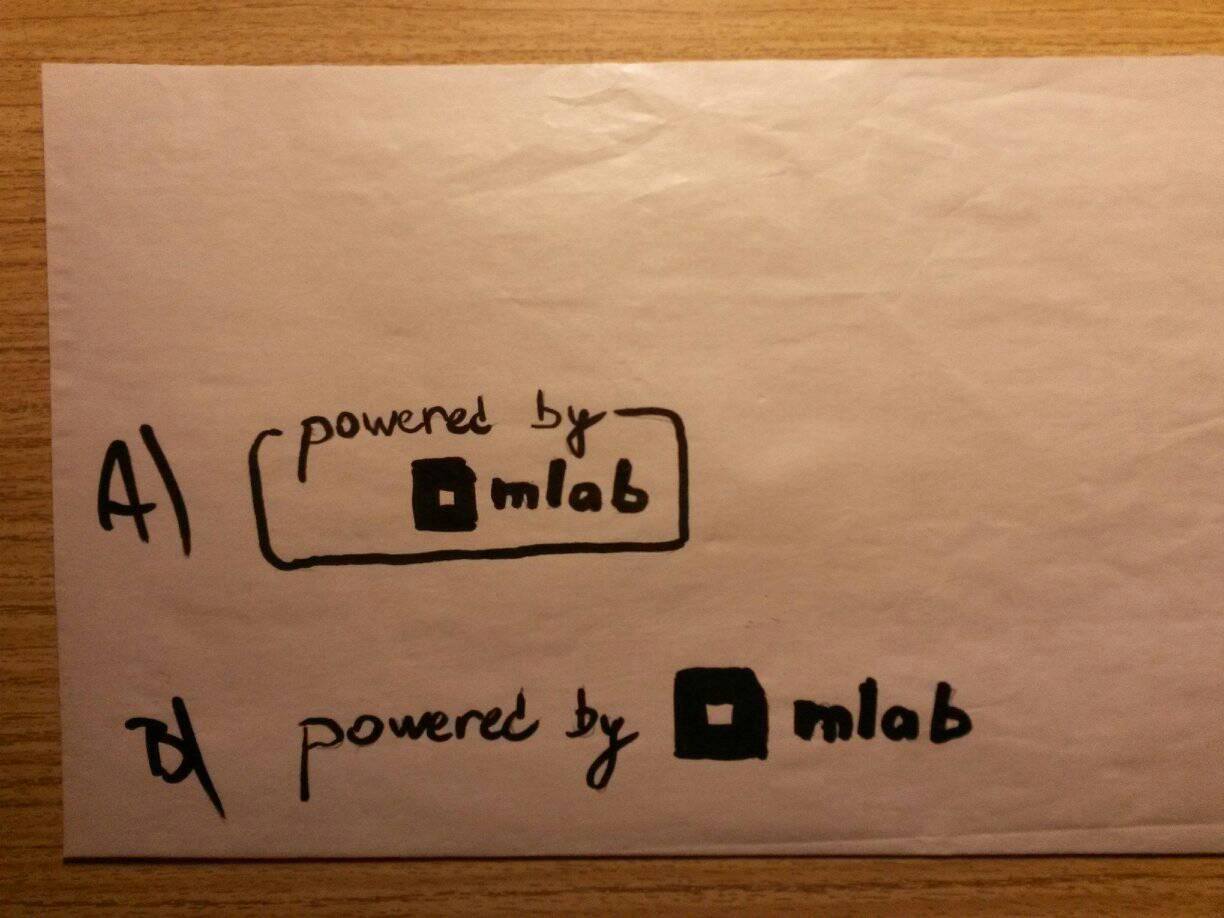 A) powered by
mlab
B) powered by mlab